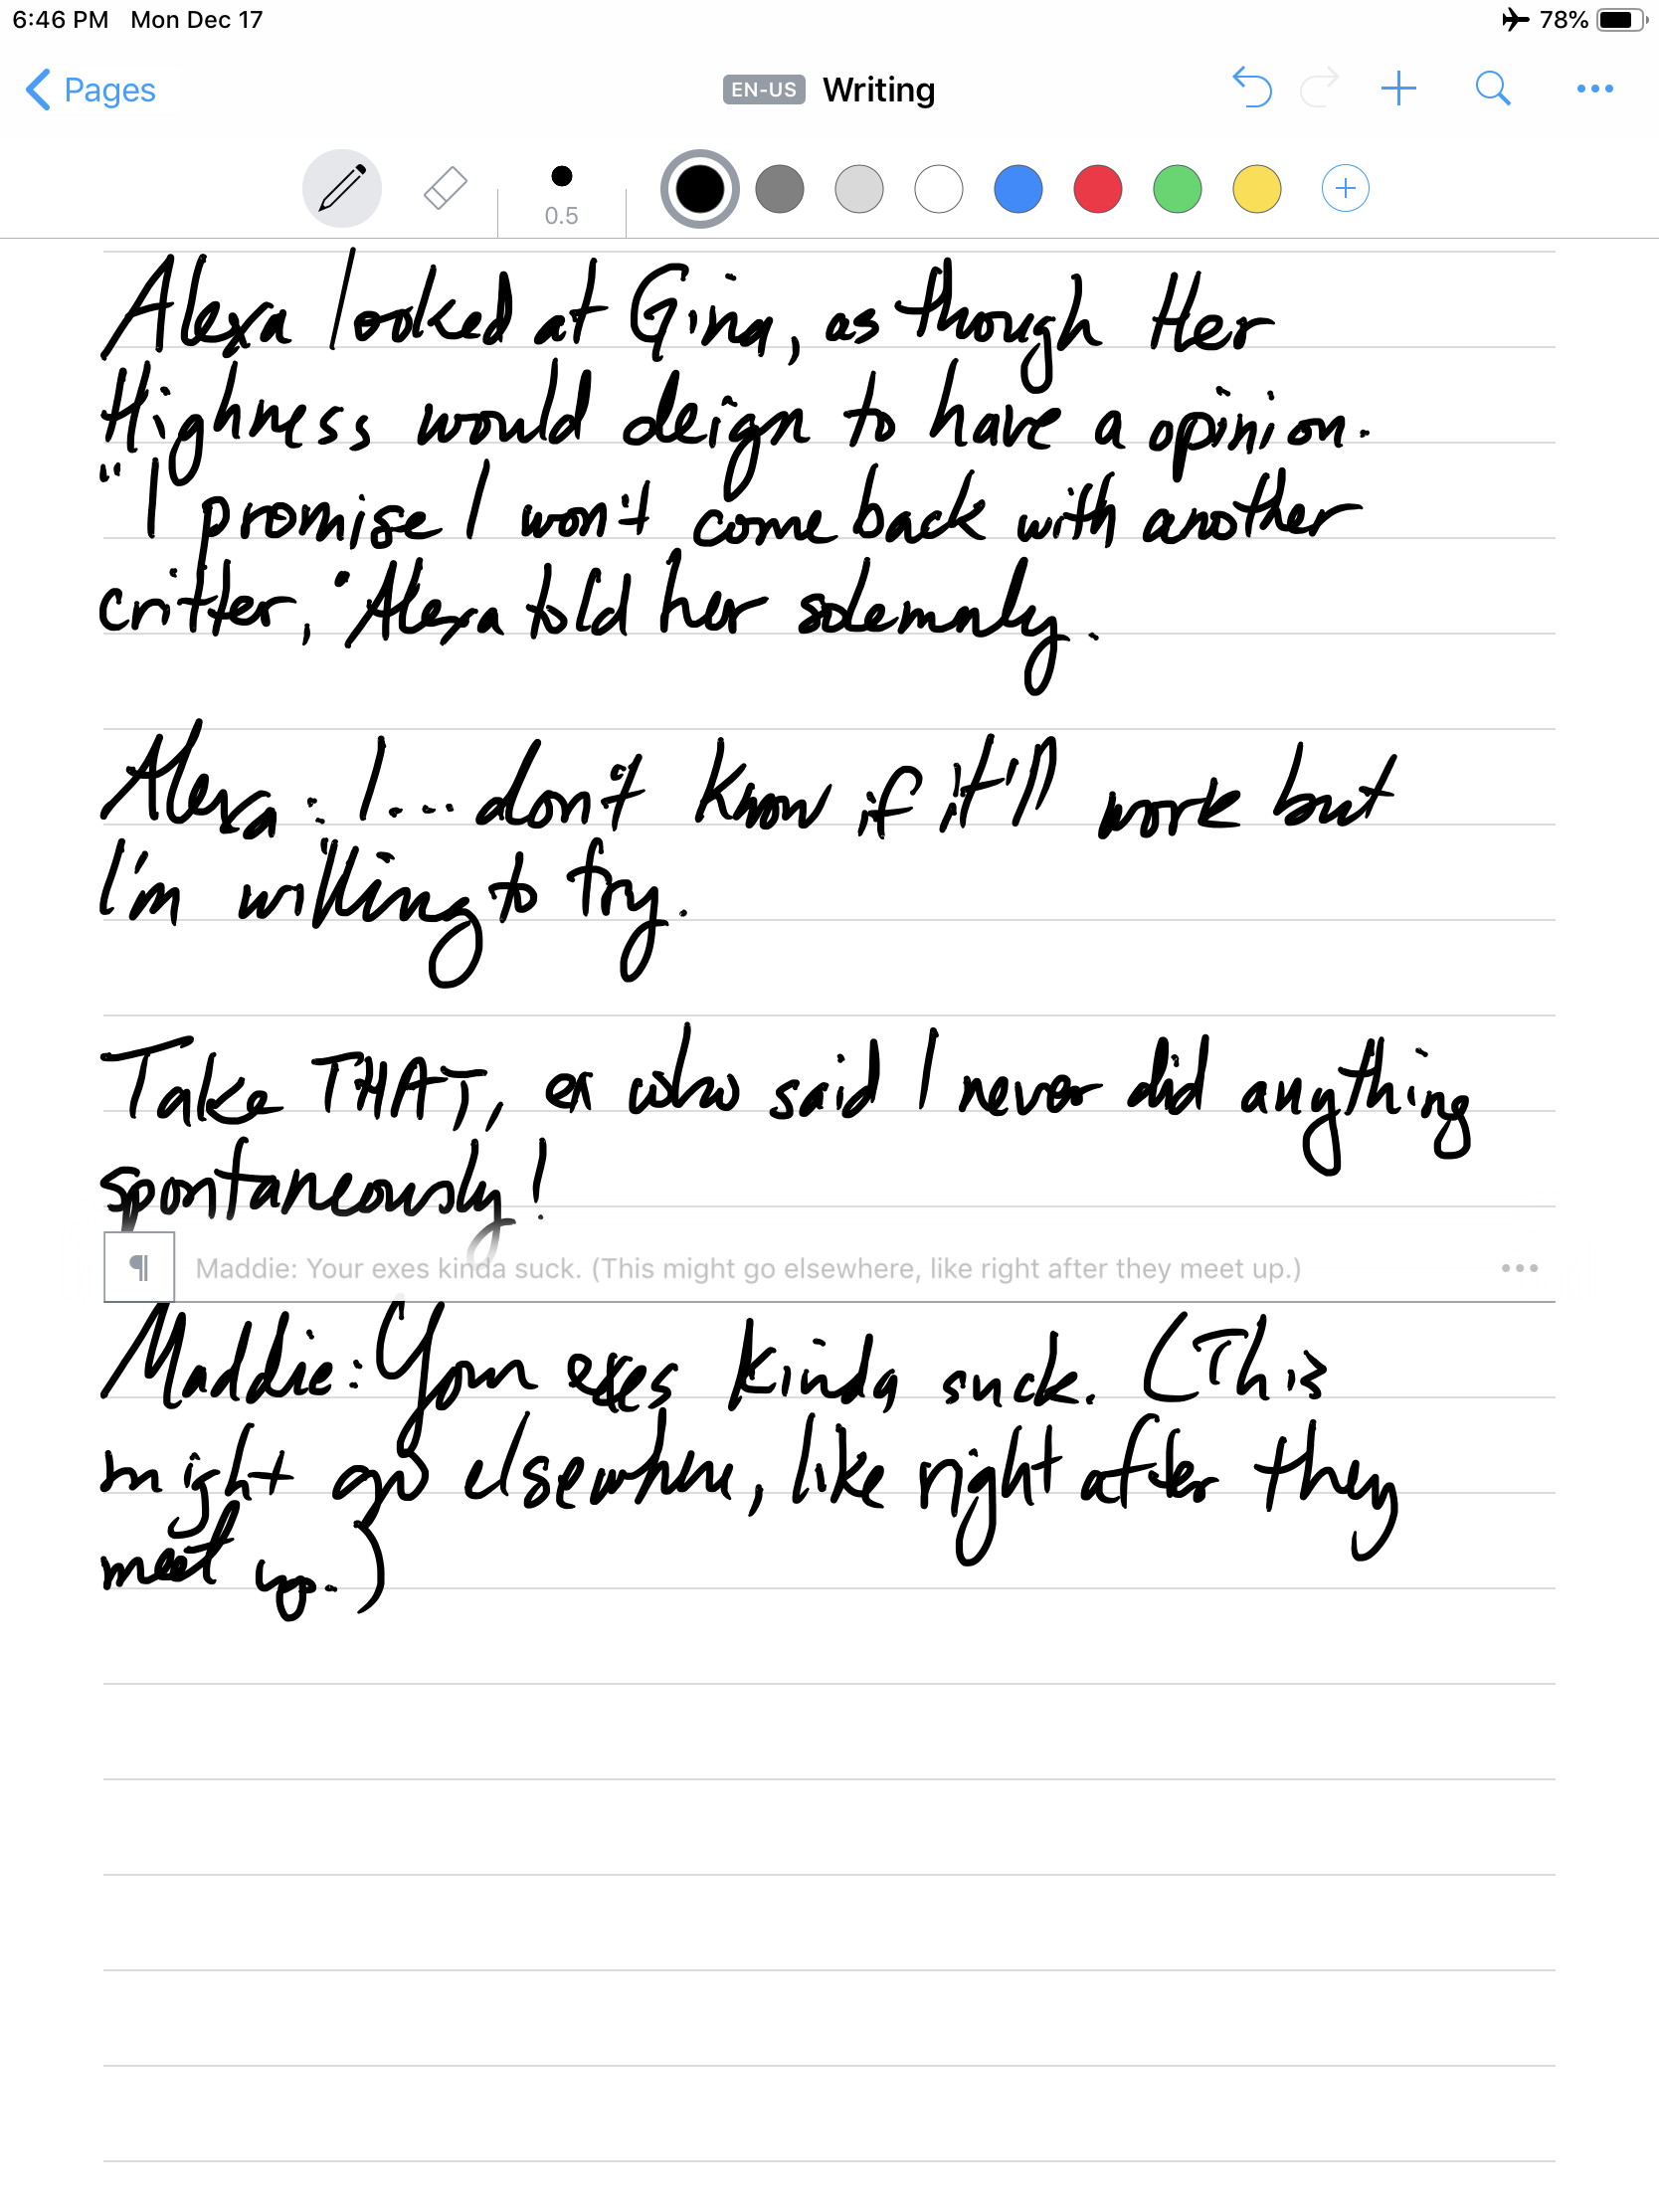 6:46 PM Mon Dec 17 78%
Pages EN-US Writing
0.5
Alexa looked at Gina, as though Her
Highness would deign to have a opinion.
"I promise I won't come back with another
critter," Alexa told her solemnly.
Alexa: I... don't know if it'll work but
I'm willing to try.
Take THAT, ex who said I never did anything
spontaneously!
¶ Maddie: Your exes kinda suck. (This might go elsewhere, like right after they meet up.)
Maddie: Your exes kinda suck. (This
might go elsewhere, like right after they
meet up.)